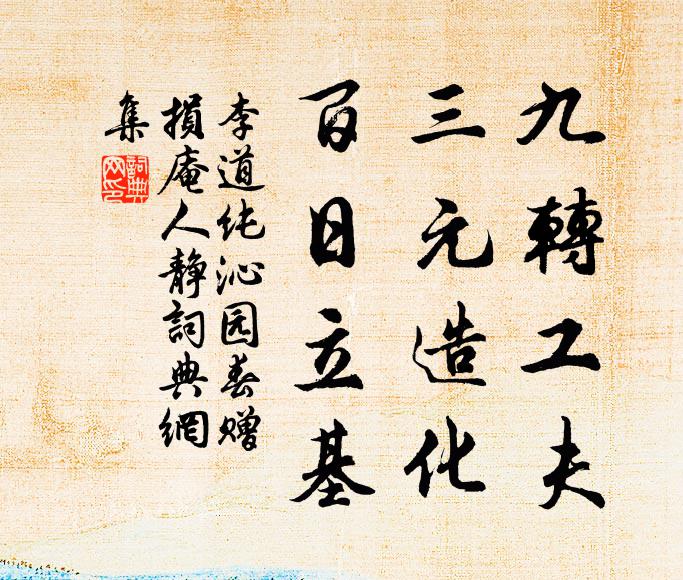 九轉工夫
三元造化
百日立基
李道纯沁园春赠
損庵人静詞典網
集
詞典網印